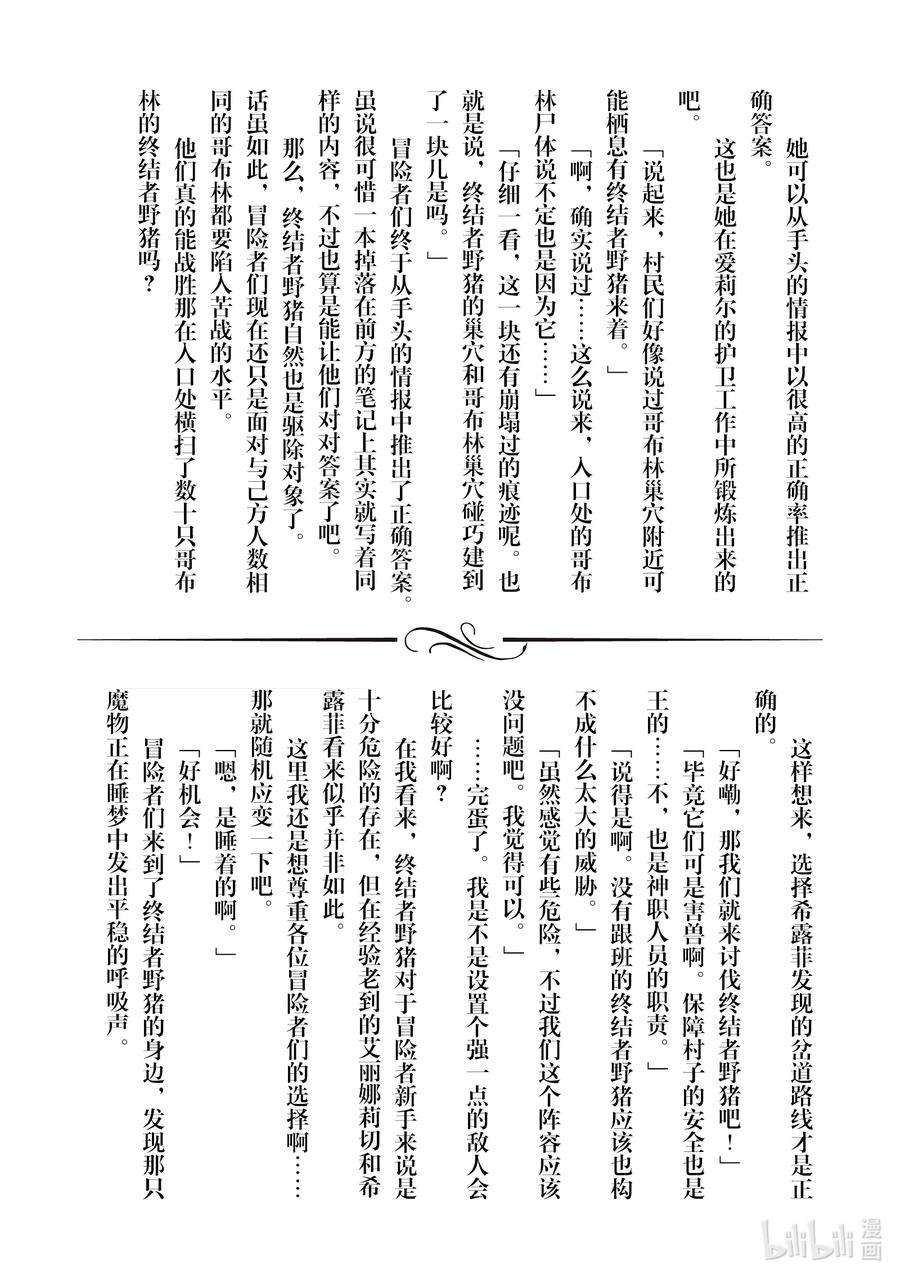 她可以从手头的情报中以很高的正确率推出正
确答案。
这也是她在爱莉尔的护卫工作中所锻炼出来的
吧。
「说起来，村民们好像说过哥布林巢穴附近可
能栖息有终结者野猪来着。」
「啊，确实说过……这么说来，入口处的哥布
林尸体说不定也是因为它……」
「仔细一看，这一块还有崩塌过的痕迹呢。也
就是说，终结者野猪的巢穴和哥布林巢穴碰巧建到
了一块儿是吗。」
冒险者们终于从手头的情报中推出了正确答案。
虽说很可惜一本掉落在前方的笔记上其实就写着同
样的内容，不过也算是能让他们对对答案了吧。
那么，终结者野猪自然也是驱除对象了。
话虽如此，冒险者们现在还只是面对与己方人数相
同的哥布林都要陷入苦战的水平。
他们真的能战胜那在入口处横扫了数十只哥布
林的终结者野猪吗？
这样想来，选择希露菲发现的岔道路线才是正
确的。
「好嘞，那我们就来讨伐终结者野猪吧！」
「毕竟它们可是害兽啊。保障村子的安全也是
王的……不，也是神职人员的职责。」
「说得是啊。没有跟班的终结者野猪应该也构
不成什么太大的威胁。」
「虽然感觉有些危险，不过我们这个阵容应该
没问题吧。我觉得可以。」
……完蛋了。我是不是设置个强一点的敌人会
比较好啊？
在我看来，终结者野猪对于冒险者新手来说是
十分危险的存在，但在经验老到的艾丽娜莉切和希
露菲看来似乎并非如此。
这里我还是想尊重各位冒险者们的选择啊……
那就随机应变一下吧。
「嗯，是睡着的啊。」
「好机会！」
冒险者们来到了终结者野猪的身边，发现那只
魔物正在睡梦中发出平稳的呼吸声。
bilibili 漫画